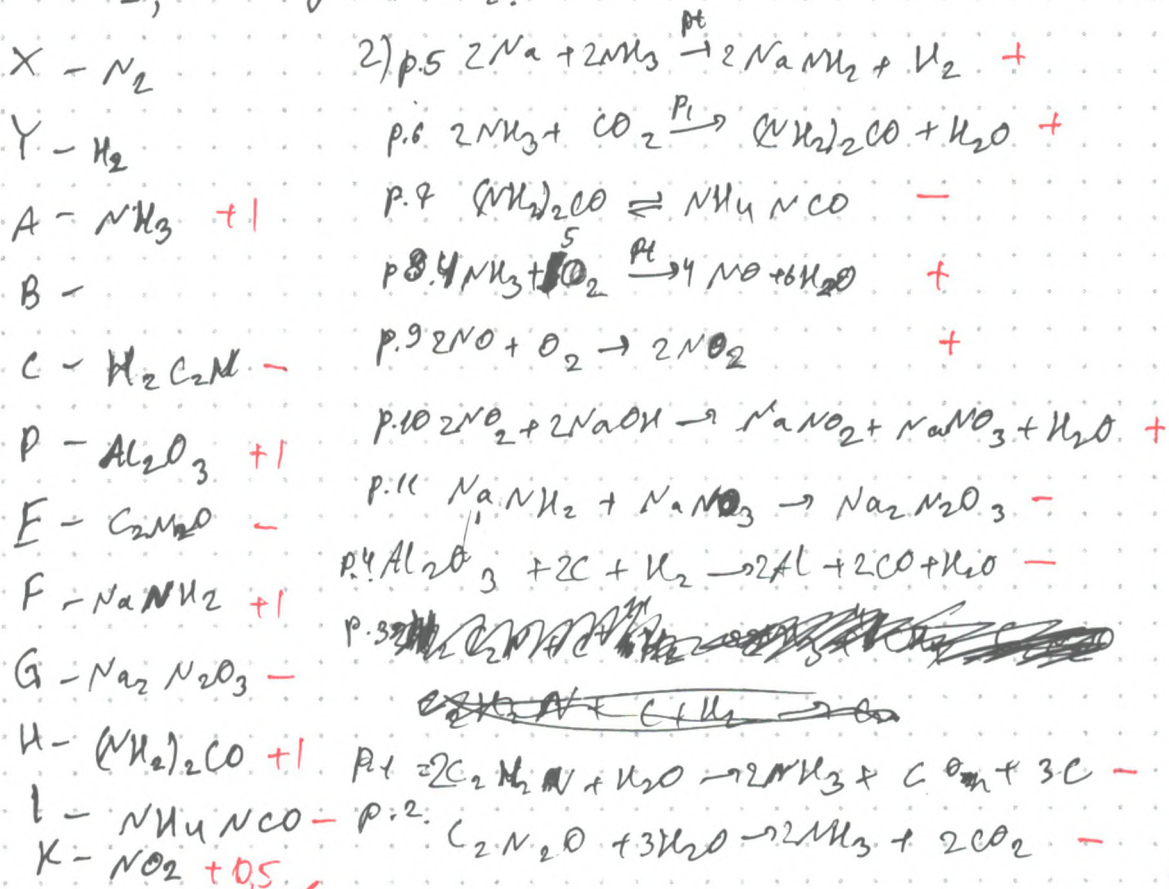 X - N2
Y - H2
A - NH3 +1
B -
C - H2C2N -
D - Al2O3 +1
E - C2N2O -
F - NaNH2 +1
G - Na2N2O3 -
H - (NH2)2CO +1
I - NH4NCO -
K - NO2 +0,5
2) р.5 2Na + 2NH3 Pt→ 2NaNH2 + H2 +
р.6 2NH3 + CO2 P,t→ (NH2)2CO + H2O +
р.7 (NH2)2CO ⇌ NH4NCO -
р8. 4NH3 + 5O2 Pt→ 4NO + 6H2O +
р.9 2NO + O2 → 2NO2 +
р.10 2NO2 + 2NaOH → NaNO2 + NaNO3 + H2O +
р.11 NaNH2 + NaNO3 → Na2N2O3 -
р.4 Al2O3 + 2C + H2 → 2Al + 2CO + H2O -
р.3
р.1 2C2H2N + H2O → 2NH3 + CO + 3C -
р.2.
C2N2O + 3H2O → 2NH3 + 2CO2 -